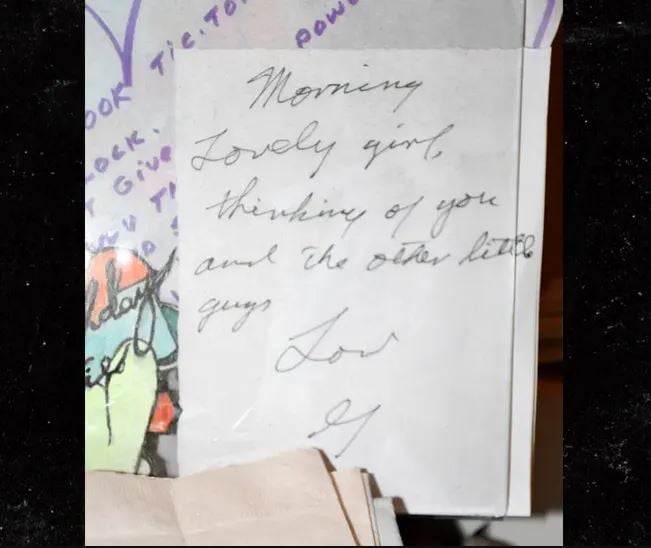 TIC.TO
POWE
OOK
LOCK.
GIVE
Morning
Lovely girl,
thinking of you
and the other little
guys
Lov